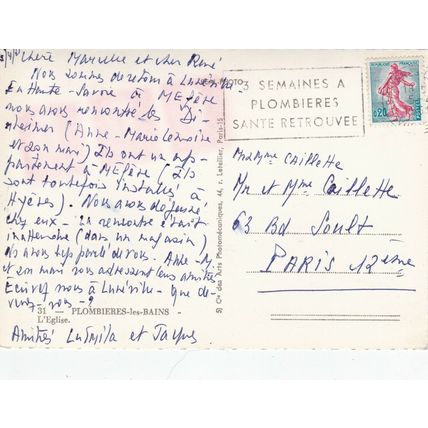 Chère Marcelle et cher René
Nous sommes de retour à Lunéville
En Haute-Savoie à MEGÈVE
nous avons rencontré les
(Anne-Marie
et son mari) Ils ont un app-
partement à MEGÈVE (Ils
sont toutefois installés à
Hyères). Nous avons déjeuné
chez eux - La rencontre était
inattendue (dans un magasin)
Nous avons parlé de vous. Anne-M.
et son mari vous adressent leurs amitiés
Ecrivez nous à Lunéville - Que de-
venez-vous - ?
31 — PLOMBIERES-les-BAINS -
L'Eglise.
Amitiés Ludmila et Jacques
Cie des Arts Photomécaniques, 44, r. Letellier, Paris-15
3 SEMAINES A
PLOMBIERES
SANTE RETROUVEE
0,20
POSTES
Mr et Mme Caillette
Mr et Mme Caillette
63 Bd Soult
PARIS 12ème